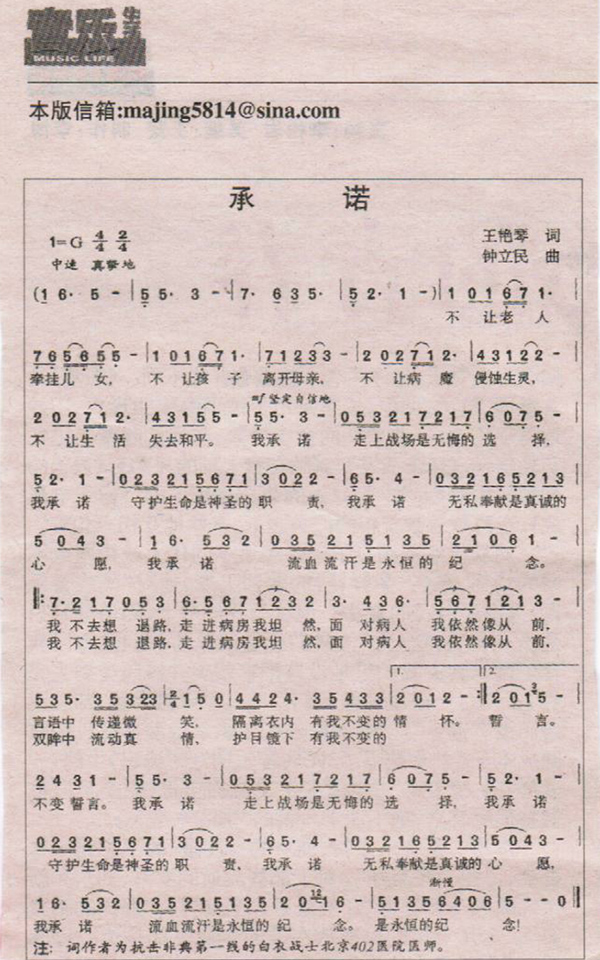 音乐生活
MUSIC LIFE
本版信箱:majing5814@sina.com
承 诺
1=G 4/4 2/4
王艳琴 词
中速 真挚地
钟立民 曲
(1 6· 5 - | 5 5· 3 - | 7· 6 3 5· | 5 2· 1 - ) | 1 0 1 6 7 1· |
不 让老 人
7 6 5 6 5 5 - | 1 0 1 6 7 1· | 7 1 2 3 3 - | 2 0 2 7 1 2· | 4 3 1 2 2 - |
牵挂儿 女, 不 让孩 子 离开母亲, 不 让病 魔 侵蚀生灵,
坚定自信地
2 0 2 7 1 2· | 4 3 1 5 5 - | 5 5· 3 - | 0 5 3 2 1 7 2 1 7 | 6 0 7 5 - |
不 让生 活 失去和平。 我承 诺 走上战场是无悔的 选 择,
5 2· 1 - | 0 2 3 2 1 5 6 7 1 | 3 0 2 2 - | 6 5· 4 - | 0 3 2 1 6 5 2 1 3 |
我承 诺 守护生命是神圣的 职 责, 我承 诺 无私奉献是真诚的
5 0 4 3 - | 1 6· 5 3 2 | 0 3 5 2 1 5 1 3 5 | 2 1 0 6 1 - |
心 愿, 我承 诺 流血流汗是永恒的 纪 念。
‖: 7· 2 1 7 0 5 3 | 6· 5 6 7 1 2 3 2 | 3· 4 3 6· | 5 6 7 1 2 1 3 - |
我 不去想 退路, 走 进病房我坦 然, 面 对病人 我依然像从 前,
我 不去想 退路, 走 进病房我坦 然, 面 对病人 我依然像从 前,
1. 2.
5 3 5· 3 5 3 2 3 | 2/4 1 5 0 | 4 4 2 4· 3 5 4 3 3 | 2 0 1 2 - :‖ 2 0 1 5 - |
言语中 传递微 笑, 隔离衣内 有我不变的 情 怀。 誓 言。
双眸中 流动真 情, 护目镜下 有我不变的
2 4 3 1 - | 5 5· 3 - | 0 5 3 2 1 7 2 1 7 | 6 0 7 5 - | 5 2· 1 - |
不变 誓言。 我承 诺 走上战场是无悔的 选 择, 我承 诺
0 2 3 2 1 5 6 7 1 | 3 0 2 2 - | 6 5· 4 - | 0 3 2 1 6 5 2 1 3 | 5 0 4 3 - |
守护生命是神圣的 职 责, 我承 诺 无私奉献是真诚的 心 愿,
渐慢
1 6· 5 3 2 | 0 3 5 2 1 5 1 3 5 | 2 0 1 - | 5 1 3 5 6 4 0 6 | 5 - - 0 ‖
我承 诺 流血流汗是永恒的 纪 念。 是永恒的纪 念!
注: 词作者为抗击非典第一线的白衣战士北京402医院医师。